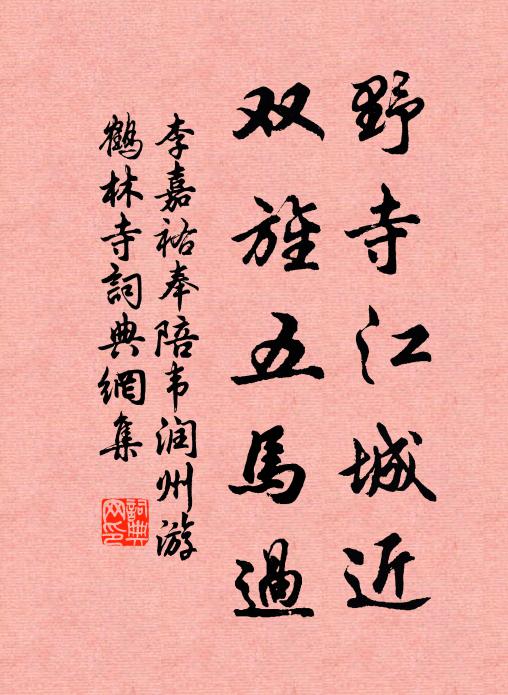 野寺江城近
双旌五馬過
李嘉祐奉陪韦润州游
鶴林寺詞典網集
詞典
网印